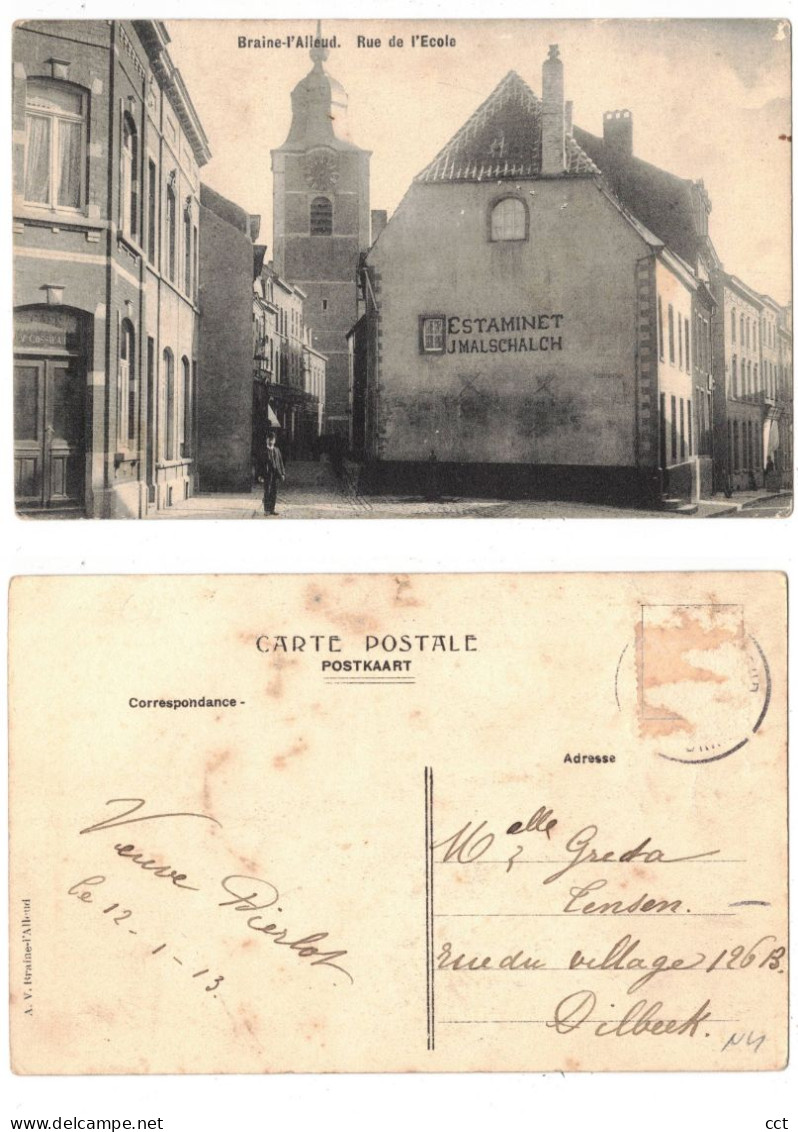 Braine-l'Alleud. Rue de l'Ecole
ESTAMINET
J MALSCHALCH
CARTE POSTALE
POSTKAART
Correspondance -
Adresse
Veuve Pierlot
le 12-1-13.
Melle Greta
Censen.
Rue du village 126 B.
Dilbeek.
A. V. Braine-l'Alleud
Delcampe.net
cct